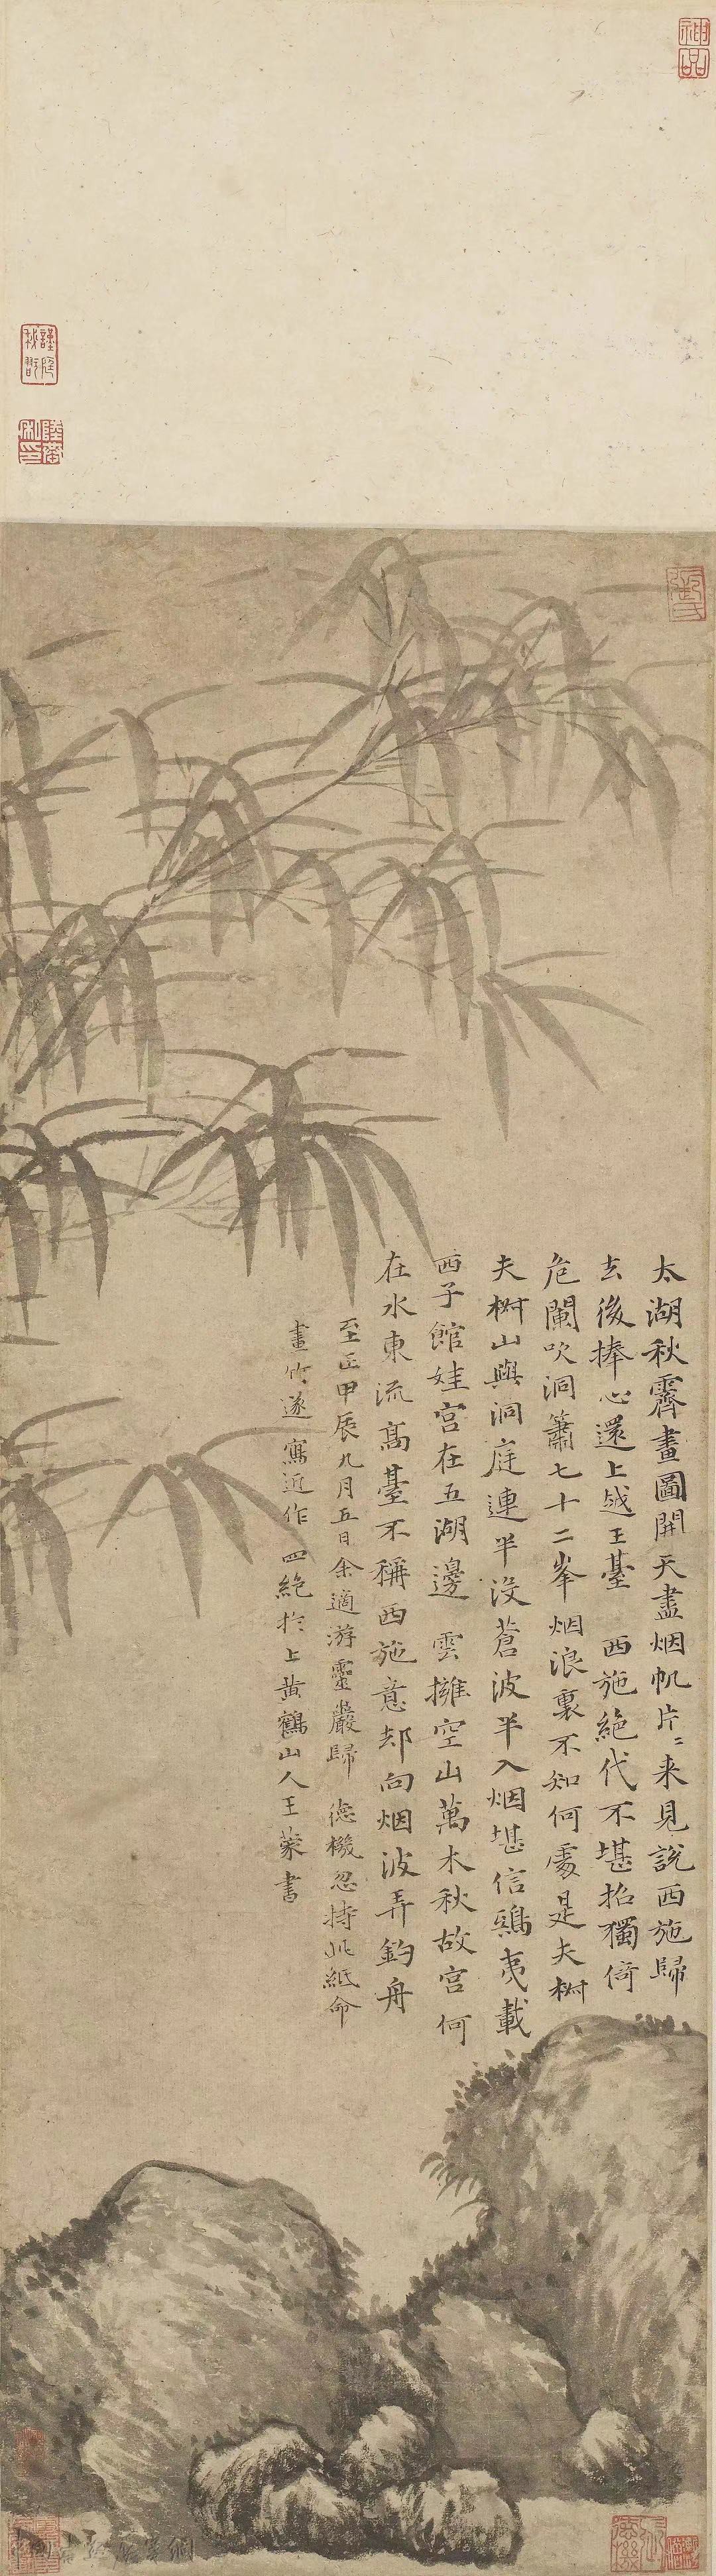 太湖秋霽畫圖開天盡烟帆片〻来見說西施歸
去後捧心還上越王臺　西施絶代不堪招獨倚
危闌吹洞簫七十二峯烟浪裏不知何處是夫椒
夫椒山與洞庭連半没蒼波半入烟堪信鴟夷載
西子館娃宫在五湖邊　雲擁空山萬木秋故宫何
在水東流髙臺不稱西施意却向烟波弄釣舟
至正甲辰九月五日余適游靈巖歸　德機忽持此紙命
畫竹遂寫近作四絶於上黄鶴山人王蒙書
神品